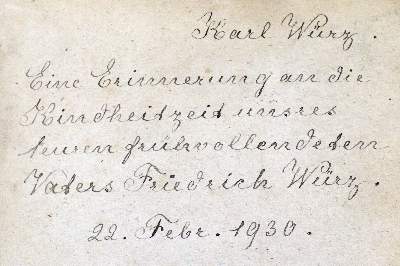 Karl Würz.
Eine Erinnerung an die
Kindheitzeit unsres
teuren frühvollendeten
Vaters Friedrich Würz.
22. Febr. 1930.